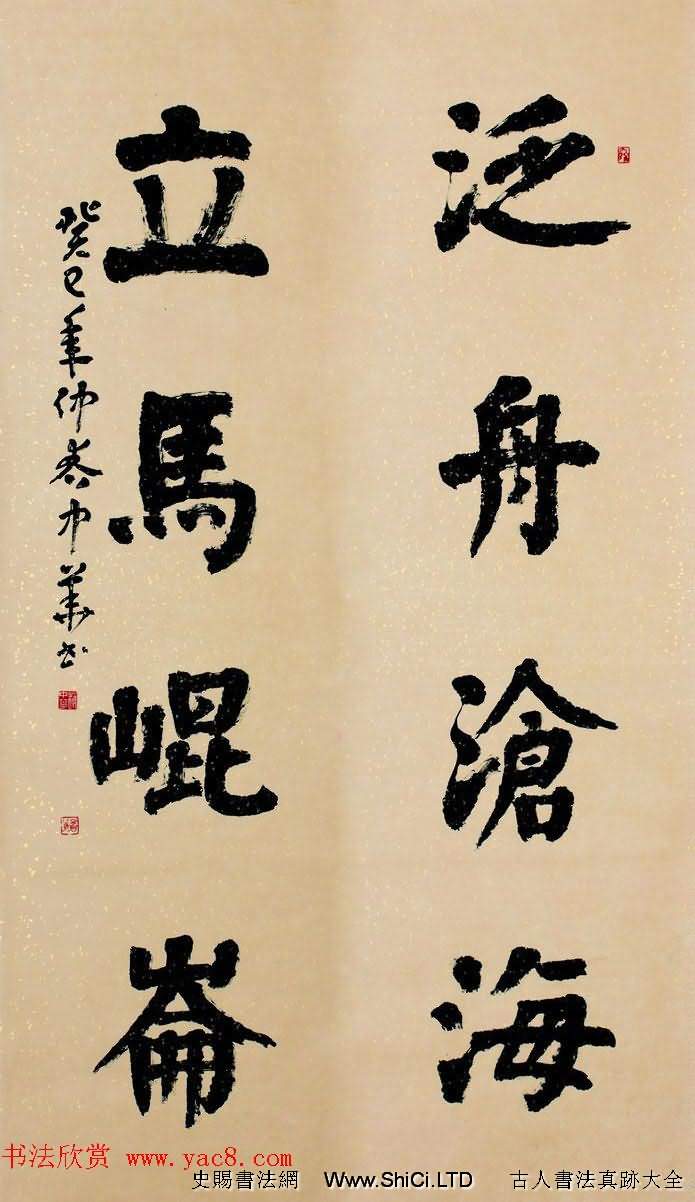 泛舟滄海
立馬崐崙
癸巳年仲春中華书
书法欣赏 www.yac8.com
史賜書法網 Www.ShiCi.LTD 古人書法真跡大全